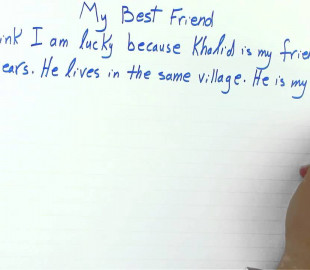 My Best Friend
ink I am lucky because Khalid is my frie
ears. He lives in the same village. He is my